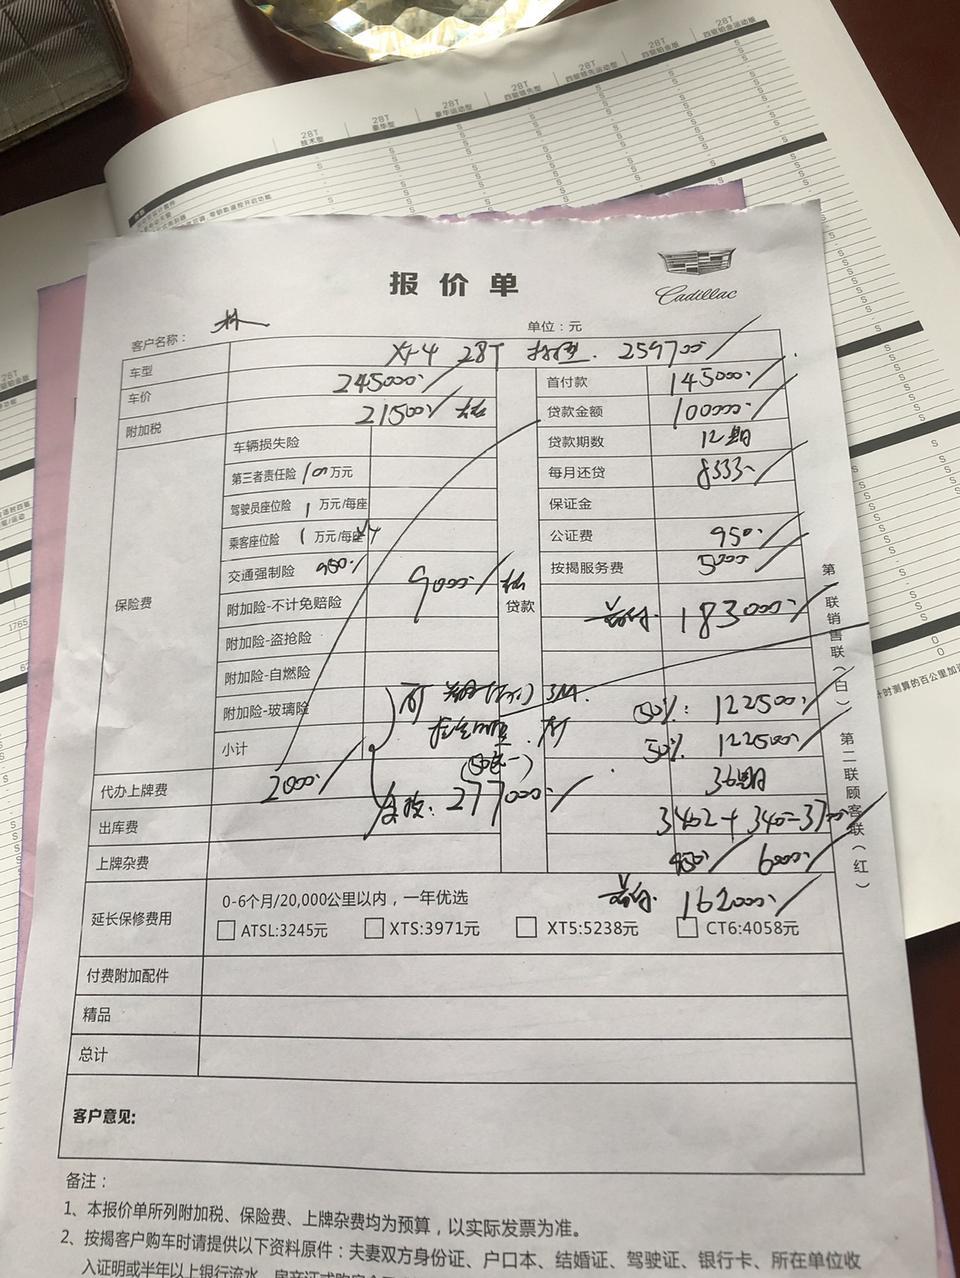 28T 技术型
28T 豪华型
28T 豪华运动型
28T 四驱领先型
28T 四驱领先运动型
28T 四驱铂金版
28T 四驱铂金运动版
报价单
Cadillac
客户名称： 林
单位：元
车型 XT4 28T 技术型. 259700
车价 245000
首付款 145000
附加税 21500
贷款金额 100000
保险费
车辆损失险
贷款期数 12期
第三者责任险 100 万元
每月还贷 8333
驾驶员座位险 1 万元/每座
保证金
乘客座位险 1 万元/每座 ×4
公证费 950
交通强制险 950
9000
按揭服务费 5000
贷款
附加险-不计免赔险
首付. 183000
附加险-盗抢险
附加险-自燃险
附加险-玻璃险
3M.
50%: 122500
小计
50% 122500
代办上牌费 2000
全款: 277000
36期
出库费
3402+340=3700
上牌杂费
950 6000
首付. 162000
延长保修费用
0-6个月/20,000公里以内，一年优选
ATSL:3245元 XTS:3971元 XT5:5238元 CT6:4058元
付费附加配件
精品
总计
客户意见:
第一联销售联（白） 第二联顾客联（红）
备注：
1、本报价单所列附加税、保险费、上牌杂费均为预算，以实际发票为准。
2、按揭客户购车时请提供以下资料原件：夫妻双方身份证、户口本、结婚证、驾驶证、银行卡、所在单位收
入证明或半年以上银行流水